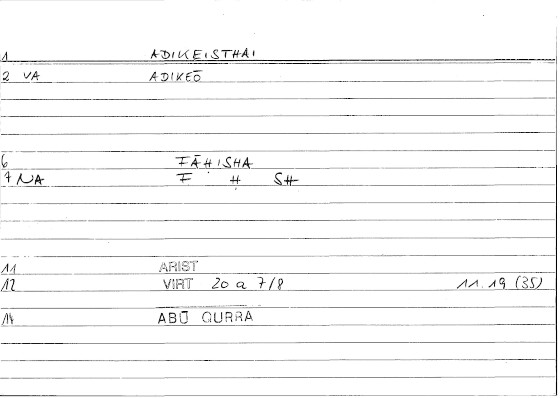 1 ADIKEISTHAI
2 VA ADIKEŌ
6 FĀHISHA
7 NA F H SH
11 ARIST
12 VIRT 20 a 7/8 11.19 (35)
14 ABŪ QURRA